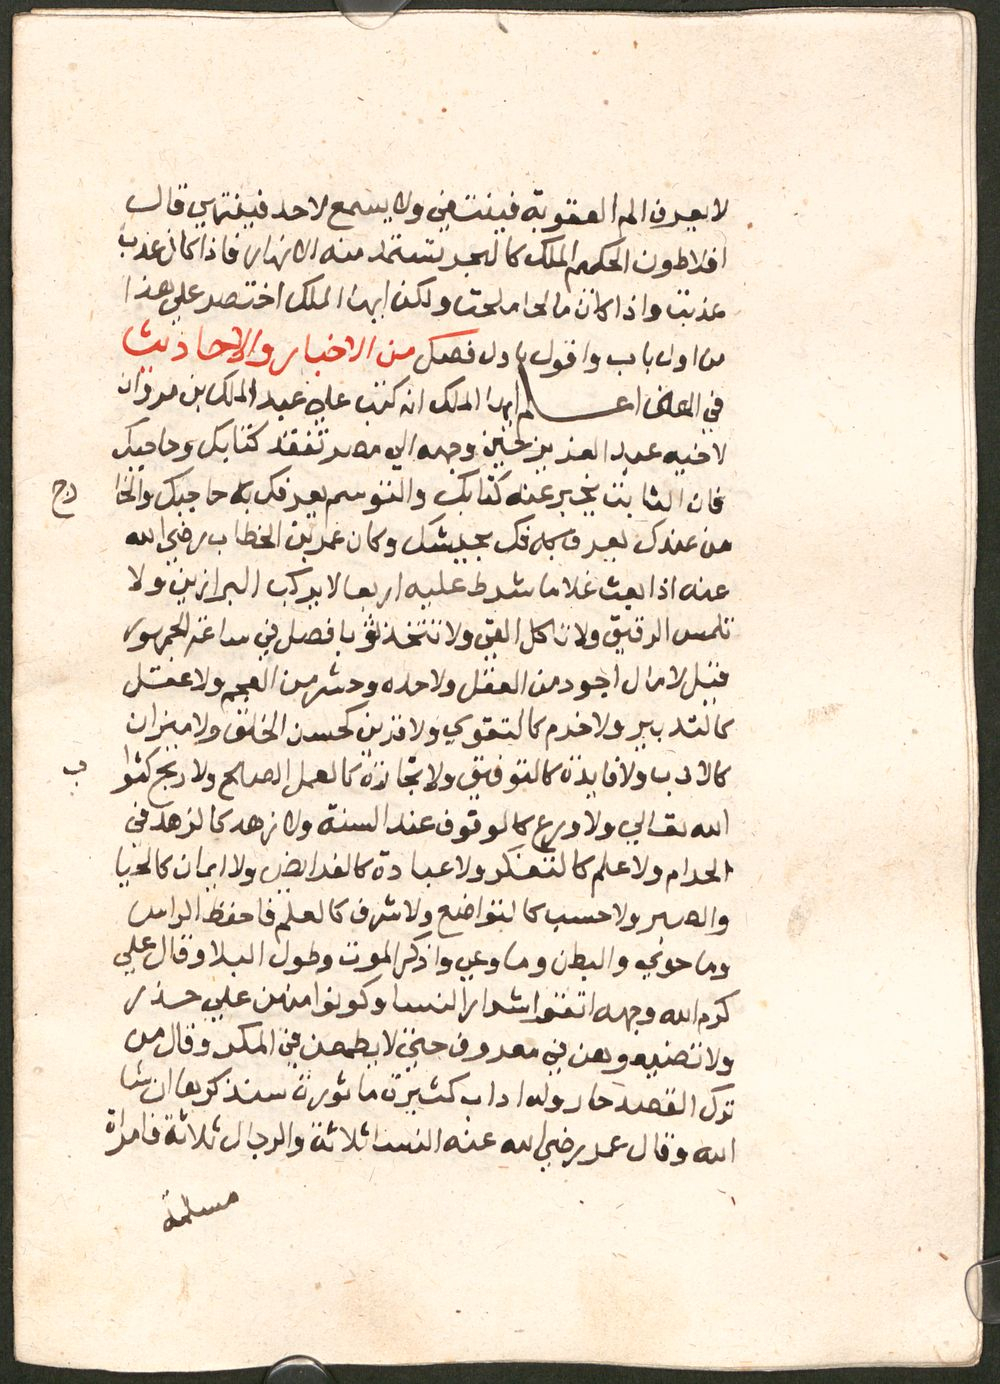 لا يعرف الم العقوبة فينتهي ولا يسمع لاحد فينتهي قال
افلاطون الحكيم الملك كالبحر تستمد منه الانهار فاذا كان عذب
عذبت واذا كان مالحا ملحت ولكن ايها الملك اختصر علي هذا
من اول باب واقول باول فصل من الاخبار والاحاديث
في اعلم ايها الملك انه كتب علي عبد الملك بن مروان
لاخيه عبد العزيز حين وجهه الي مصر تفقد كتابك وحاجبك
فان الثابت يخبر عنه كتابك والتوسم يعرفك به حاجبك والخا
رج
من عندك يعرفك بجليسك وكان عمر بن الخطاب رضي الله
عنه اذا بعث غلاما شرط عليه اربعا لا يركب البرازين ولا
تلمس الرقيق ولا تاكل القي ولا تتخذ
قيل لا مال اجود من العقل ولا حده وحش من العجم ولا عقل
كالتدبير ولا خدم كالتقوي ولا قرين كحسن الخلق ولا ميزان
كالادب ولا فايدة كالتوفيق ولا تجارة كالعمل الصالح ولا ربح كثوا
ب
الله تعالي ولا ورع كالوقوف عند السنة ولا زهد كالزهد في
الحرام ولا علم كالتفكر ولا عبادة كالفرايض ولا ايمان كالحيا
والصبر ولا حسب كالتواضع ولا شرف كالعلم فاحفظ الراس
وما حوي والبطن وما وعي واذكر الموت وطول البلا وقال علي
كرم الله وجهه اتقوا شرار النسا وكونوا منهن علي حذر
ولا تطيعوهن في معروف حتي لا يطمعن في المكر وقال من
ترك القصد حار وله اداب كثيرة ماثورة سنذكرها ان شا
الله وقال عمر رضي الله عنه النسا ثلاثة والرجال ثلاثة فامراة
مسلمة